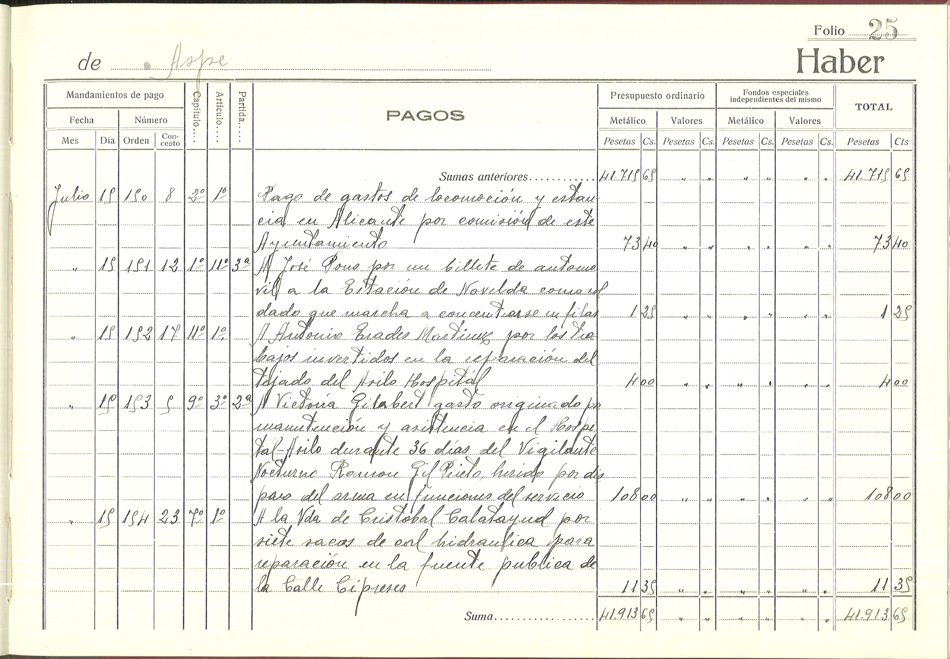 Folio 25
de Aspe
Haber
Mandamientos de pago Capítulo.... Artículo.... Partida..... PAGOS Presupuesto ordinario Fondos especiales independientes del mismo TOTAL
Fecha Número Metálico Valores Metálico Valores
Mes Día Orden Concepto Pesetas Cs. Pesetas Cs. Pesetas Cs. Pesetas Cs. Pesetas Cts
Sumas anteriores............ 41.715 65 " " " " " " 41.715 65
Julio 15 150 8 2º 1º Pago de gastos de locomoción y estan-
cia en Alicante por comisión de este
Ayuntamiento 73 40 " " " " " " 73 40
" 15 151 12 1º 11º 3ª A José Pons por un billete de automo
vil a la Estación de Novelda como sol
dado que marcha a concentrarse en filas 1 25 " " " " " " 1 25
" 15 152 17 11º 1º A Antonio Erades Martinez por los tra
bajos invertidos en la reparación del
tejado del Asilo Hospital 4 00 " " " " " " 4 00
" 15 153 5 9º 3º 2ª A Victoria Gilabert gasto originado por
manutención y asistencia en el Hospi
tal-Asilo durante 36 días del Vigilante
Nocturno Ramon Gil Prieto, herido por dis
paro del arma en funciones del servicio 108 00 " " " " " " 108 00
" 15 154 23 7º 1º A la Vda de Cristobal Calatayud por
siete sacos de cal hidraulica para
reparación en la fuente publica de
la Calle Cipreses 11 35 " " " " " " 11 35
Suma..................... 41.913 65 " " " " " " 41.913 65